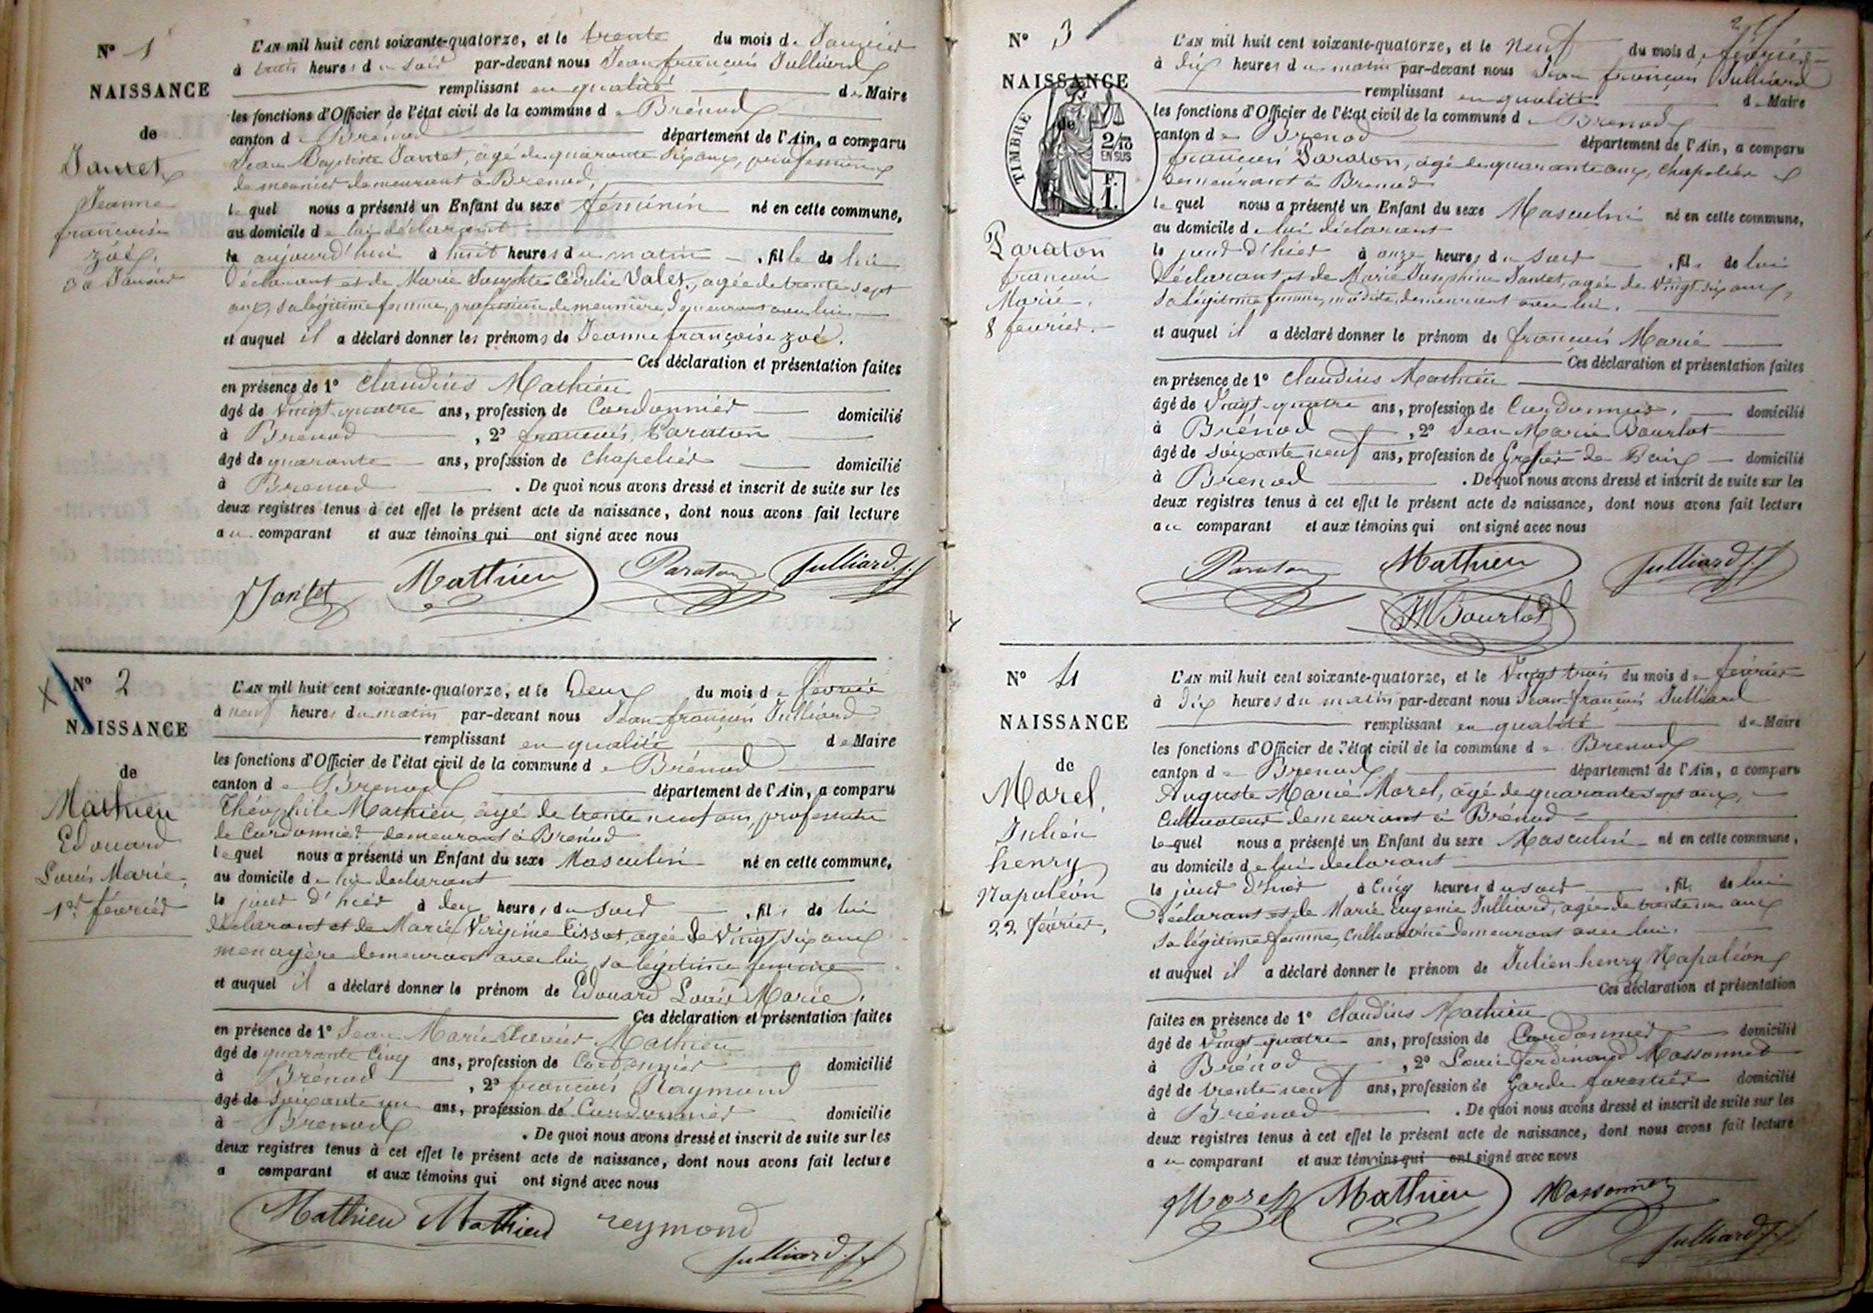 N° 1
NAISSANCE
de
Jantet
Jeanne
françoise
zoé.
30 Janvier
L'AN mil huit cent soixante-quatorze, et le trente du mois de Janvier
à trois heures du soir par-devant nous Jean françois Julliard
remplissant en qualité de Maire
les fonctions d'Officier de l'état civil de la commune de Brénod
canton de Brénod département de l'Ain, a comparu
Jean Baptiste Jantet, âgé de quarante six ans, profession
de meunier demeurant à Brenod,
lequel nous a présenté un Enfant du sexe féminin né en cette commune,
au domicile de lui déclarant
le aujourd'hui à huit heures du matin, fille de lui
déclarant et de Marie Josephte Valet, agée de trente sept
ans, sa légitime femme, profession de meunière demeurant avec lui
et auquel il a déclaré donner les prénoms de Jeanne françoise zoé.
Ces déclaration et présentation faites
en présence de 1° Claudius Mathieu
âgé de vingt-quatre ans, profession de Cordonnier domicilié
à Brenod, 2° françois Paraton
âgé de quarante ans, profession de chapelier domicilié
à Brenod. De quoi nous avons dressé et inscrit de suite sur les
deux registres tenus à cet effet le présent acte de naissance, dont nous avons fait lecture
au comparant et aux témoins qui ont signé avec nous
Jantet Mathieu Paraton Julliard J. f
N° 2
NAISSANCE
de
Mathieu
Edouard
Louis Marie,
1er février
L'AN mil huit cent soixante-quatorze, et le Deux du mois de février
à neuf heures du matin par-devant nous Jean françois Julliard
remplissant en qualité de Maire
les fonctions d'Officier de l'état civil de la commune de Brénod
canton de Brenod département de l'Ain, a comparu
Théophile Mathieu, âgé de trente neuf ans, profession
de Cordonnier demeurant à Brenod
lequel nous a présenté un Enfant du sexe Masculin né en cette commune,
au domicile de lui déclarant
le jour d'hier à deux heures du soir, fils de lui
déclarant et de Marie Virginie Tissot, agée de Vingt six ans
menagère demeurant avec lui, sa légitime femme
et auquel il a déclaré donner le prénom de Edouard Louis Marie.
Ces déclaration et présentation faites
en présence de 1° Jean Marie Mathieu
âgé de quarante Cinq ans, profession de Cordonnier domicilié
à Brénod, 2° françois Raymond
âgé de soixante un ans, profession de Cordonnier domicilié
à Brenod. De quoi nous avons dressé et inscrit de suite sur les
deux registres tenus à cet effet le présent acte de naissance, dont nous avons fait lecture
a comparant et aux témoins qui ont signé avec nous
Mathieu Mathieu reymond
Julliard J. f
N° 3
NAISSANCE
de
TIMBRE
2/10
EN SUS
F.
1.
Paraton
françois
Marie.
8 février.
L'AN mil huit cent soixante-quatorze, et le Neuf du mois de février
à dix heures du matin par-devant nous Jean françois Julliard
remplissant en qualité de Maire
les fonctions d'Officier de l'état civil de la commune de Brenod
canton de Brenod département de l'Ain, a comparu
françois Paraton, âgé de quarante ans, chapelier
demeurant à Brenod
lequel nous a présenté un Enfant du sexe Masculin né en cette commune,
au domicile de lui déclarant
le jour d'hier à onze heures du soir, fils de lui
déclarant et de Marie Josephine Jantet, agée de vingt six ans,
sa légitime femme, modiste, demeurant avec lui.
et auquel il a déclaré donner le prénom de françois Marie
Ces déclaration et présentation faites
en présence de 1° Claudius Mathieu
âgé de Vingt-quatre ans, profession de Cordonnier, domicilié
à Brénod, 2° Jean Marie Bourlot
âgé de soixante neuf ans, profession de Greffier de Paix domicilié
à Brenod. De quoi nous avons dressé et inscrit de suite sur les
deux registres tenus à cet effet le présent acte de naissance, dont nous avons fait lecture
au comparant et aux témoins qui ont signé avec nous
Paraton Mathieu Julliard J. f
JMBourlot
N° 4
NAISSANCE
de
Morel,
Julien
henry
Napoléon
22 février,
L'AN mil huit cent soixante-quatorze, et le Vingt trois du mois de février
à Dix heures du matin par-devant nous Jean-françois Julliard
remplissant en qualité de Maire
les fonctions d'Officier de l'état civil de la commune de Brenod
canton de Brenod département de l'Ain, a comparu
Auguste Marie Morel, âgé de quarante sept ans,
Cultivateur demeurant à Brénod
lequel nous a présenté un Enfant du sexe Masculin né en cette commune,
au domicile de lui déclarant
le jour d'hier à Cinq heures du soir, fils de lui
Déclarant et de Marie Eugenie Julliard, agée de trente un ans
sa légitime femme, Cultivatrice demeurant avec lui.
et auquel il a déclaré donner le prénom de Julien-henry Napoléon
Ces déclaration et présentation
faites en présence de 1° Claudius Mathieu
âgé de vingt-quatre ans, profession de Cordonnier domicilié
à Brénod, 2° Louis ferdinand Massonnet
âgé de trente neuf ans, profession de Garde forestier domicilié
à Brénod. De quoi nous avons dressé et inscrit de suite sur les
deux registres tenus à cet effet le présent acte de naissance, dont nous avons fait lecture
au comparant et aux témoins qui ont signé avec nous
Morel Mathieu Massonnet
Julliard J. f